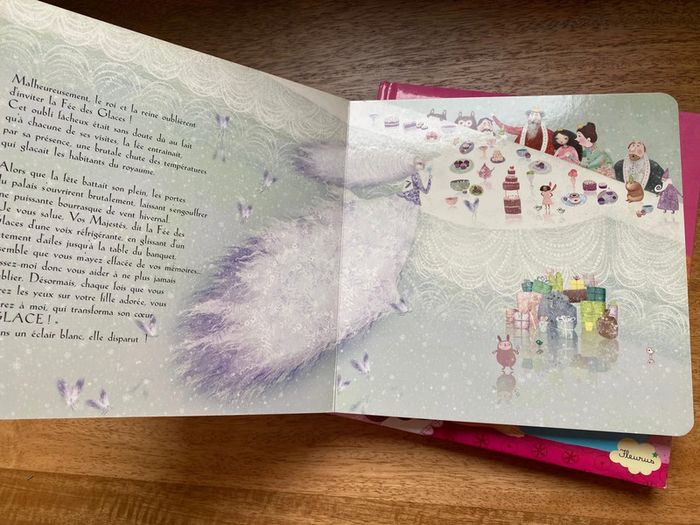 Malheureusement, le roi et la reine oublièrent
d'inviter la Fée des Glaces !
Cet oubli fâcheux était sans doute dû au fait
qu'à chacune de ses visites, la fée entraînait,
par sa présence, une brutale chute des températures
qui glaçait les habitants du royaume.
Alors que la fête battait son plein, les portes
du palais s'ouvrirent brutalement, laissant s'engouffrer
une puissante bourrasque de vent hivernal.
Je vous salue, Vos Majestés, dit la Fée des
Glaces d'une voix réfrigérante, en glissant d'un
tement d'ailes jusqu'à la table du banquet.
semble que vous m'ayez effacée de vos mémoires...
ssez-moi donc vous aider à ne plus jamais
blier. Désormais, chaque fois que vous
rez les yeux sur votre fille adorée, vous
rez à moi, qui transforma son cœur
GLACE ! »
ns un éclair blanc, elle disparut !
Fleurus